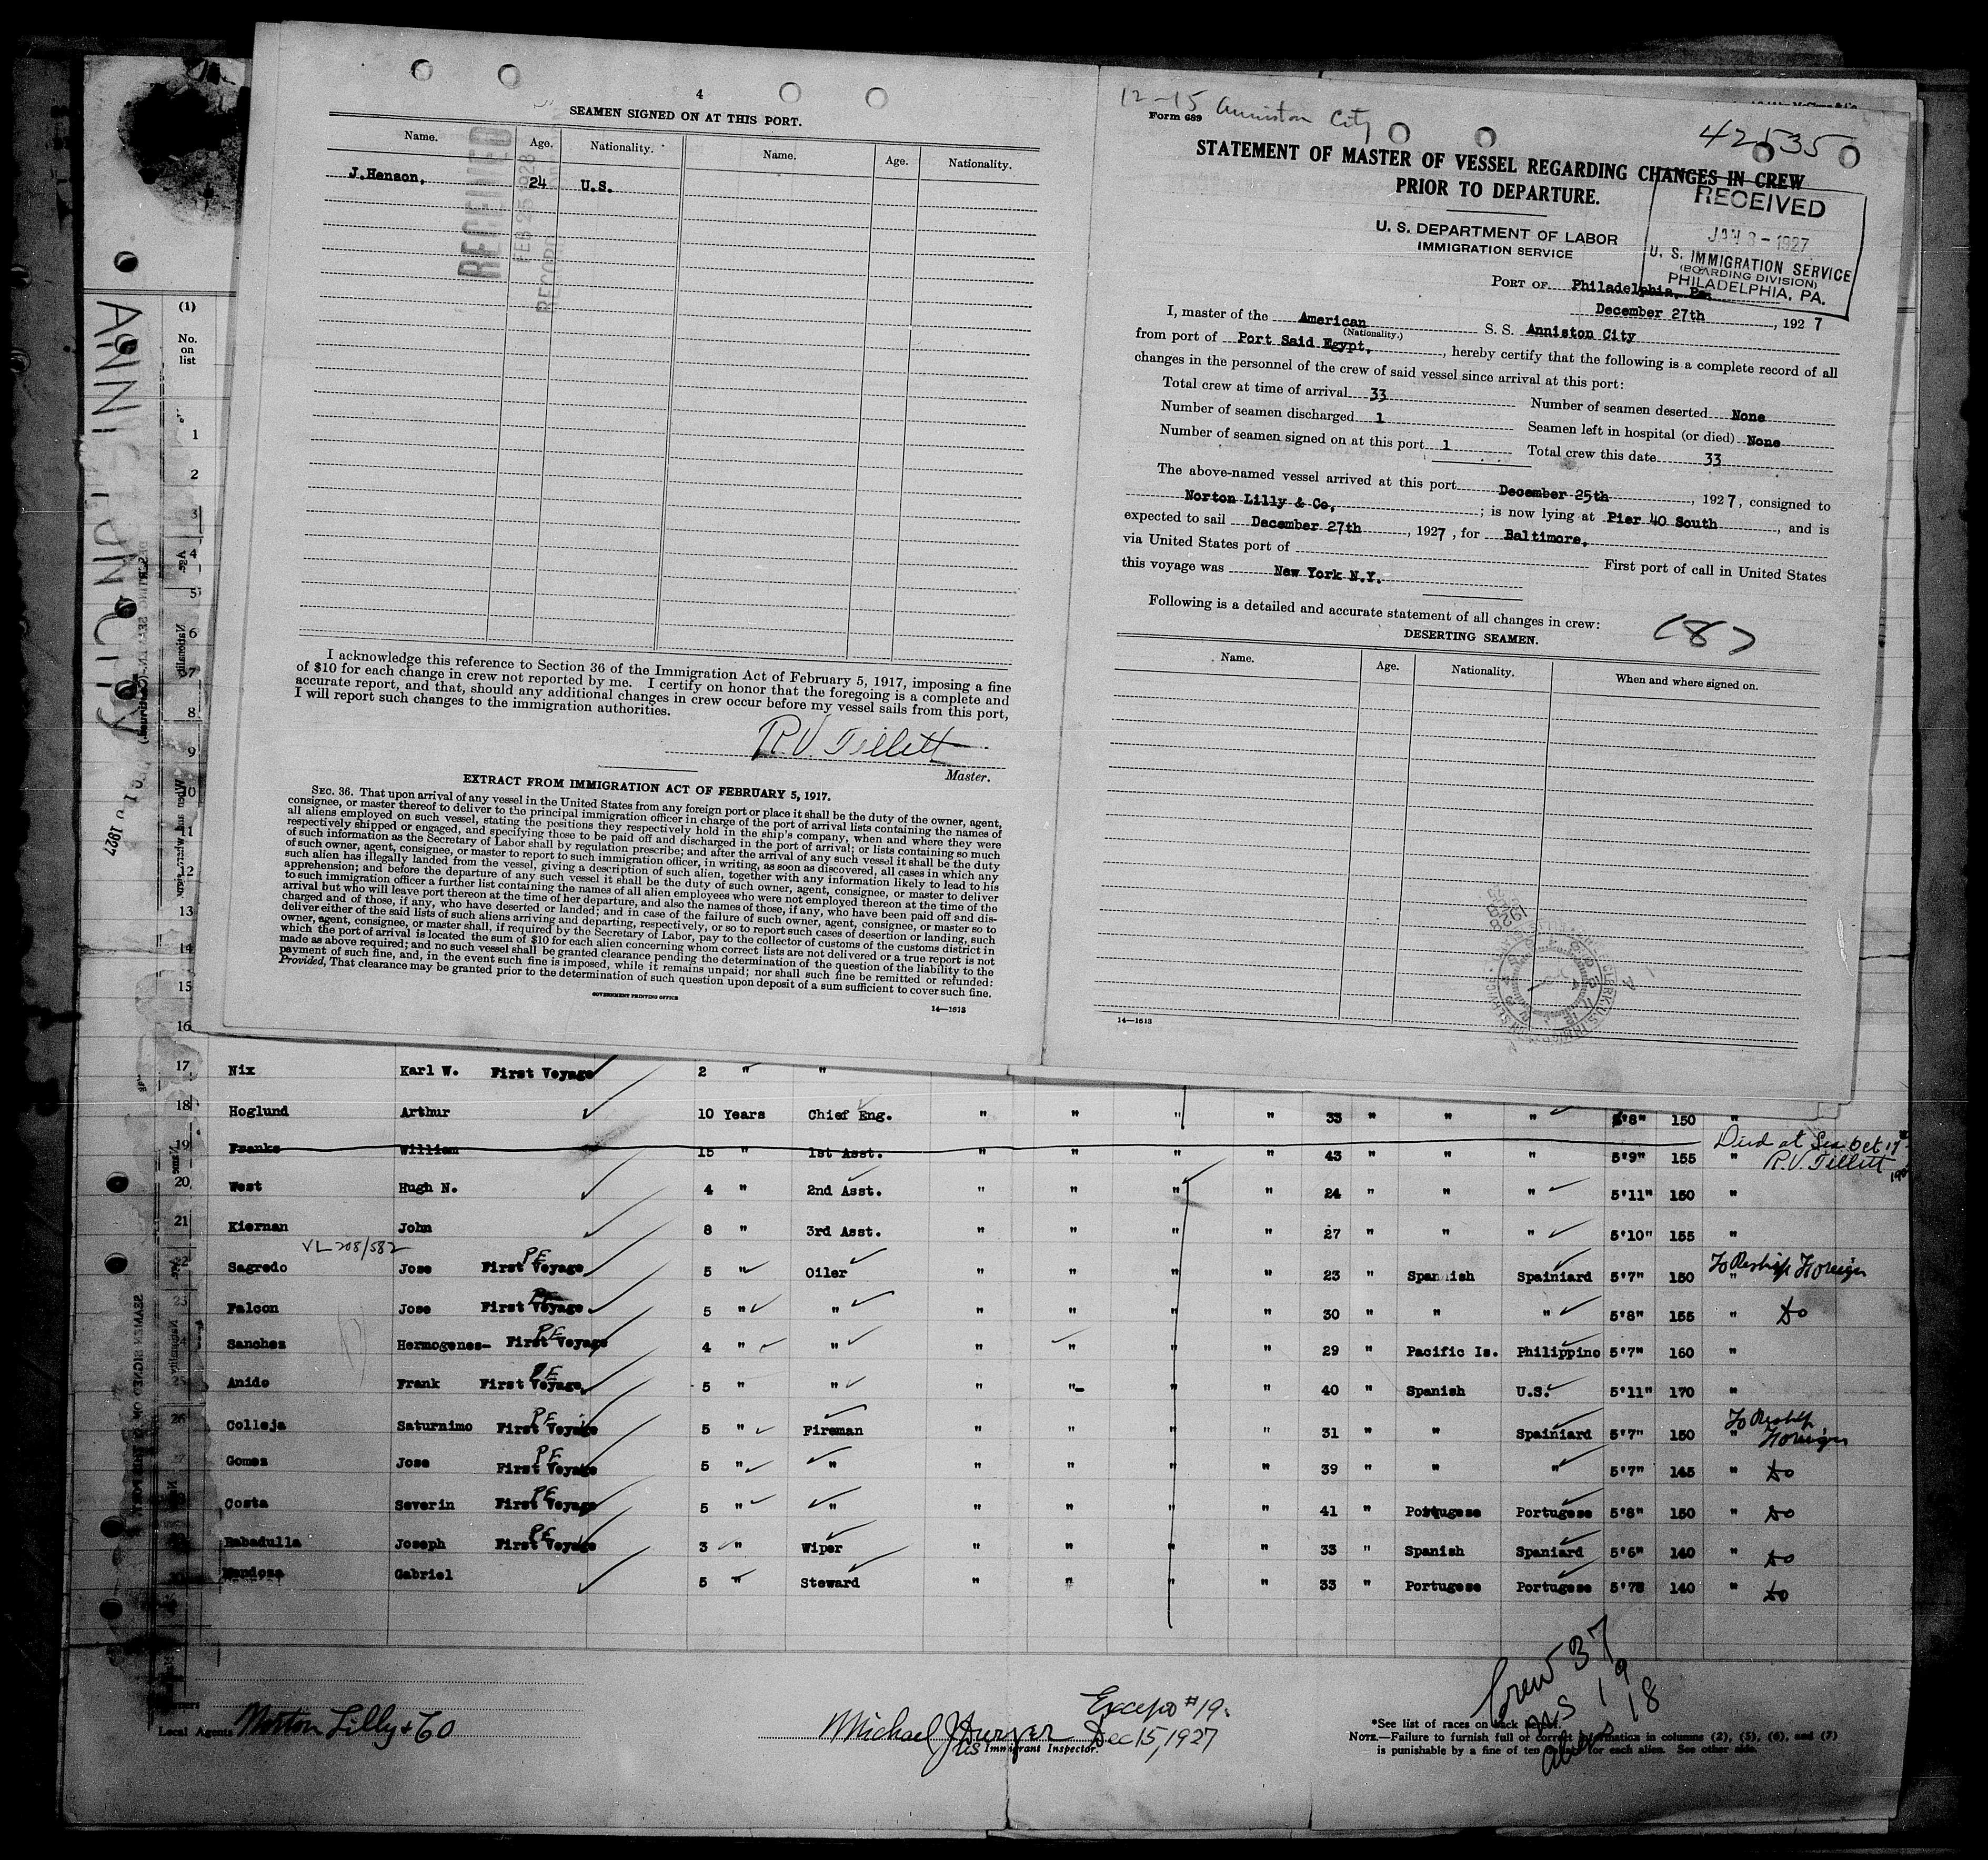 4
SEAMEN SIGNED ON AT THIS PORT.
Name. Age. Nationality. Name. Age. Nationality.
J.Henson, 24 U.S.
RECEIVED
FEB 25 1928
RECORD
I acknowledge this reference to Section 36 of the Immigration Act of February 5, 1917, imposing a fine
of $10 for each change in crew not reported by me. I certify on honor that the foregoing is a complete and
accurate report, and that, should any additional changes in crew occur before my vessel sails from this port,
I will report such changes to the immigration authorities.
R.V. Tillett
Master.
EXTRACT FROM IMMIGRATION ACT OF FEBRUARY 5, 1917.
SEC. 36. That upon arrival of any vessel in the United States from any foreign port or place it shall be the duty of the owner, agent,
consignee, or master thereof to deliver to the principal immigration officer in charge of the port of arrival lists containing the names of
all aliens employed on such vessel, stating the positions they respectively hold in the ship's company, when and where they were
respectively shipped or engaged, and specifying those to be paid off and discharged in the port of arrival; or lists containing so much
of such information as the Secretary of Labor shall by regulation prescribe; and after the arrival of any such vessel it shall be the duty
of such owner, agent, consignee, or master to report to such immigration officer, in writing, as soon as discovered, all cases in which any
such alien has illegally landed from the vessel, giving a description of such alien, together with any information likely to lead to his
apprehension; and before the departure of any such vessel it shall be the duty of such owner, agent, consignee, or master to deliver
to such immigration officer a further list containing the names of all alien employees who were not employed thereon at the time of the
arrival but who will leave port thereon at the time of her departure, and also the names of those, if any, who have been paid off and dis-
charged and of those, if any, who have deserted or landed; and in case of the failure of such owner, agent, consignee, or master so to
deliver either of the said lists of such aliens arriving and departing, respectively, or so to report such cases of desertion or landing, such
owner, agent, consignee, or master shall, if required by the Secretary of Labor, pay to the collector of customs of the customs district in
which the port of arrival is located the sum of $10 for each alien concerning whom correct lists are not delivered or a true report is not
made as above required; and no such vessel shall be granted clearance pending the determination of the question of the liability to the
payment of such fine, and, in the event such fine is imposed, while it remains unpaid; nor shall such fine be remitted or refunded:
Provided, That clearance may be granted prior to the determination of such question upon deposit of a sum sufficient to cover such fine.
GOVERNMENT PRINTING OFFICE
14—1513
12-15 Anniston City
Form 689
42535
STATEMENT OF MASTER OF VESSEL REGARDING CHANGES IN CREW
PRIOR TO DEPARTURE.
U. S. DEPARTMENT OF LABOR
IMMIGRATION SERVICE
RECEIVED
JAN 3 - 1927
U. S. IMMIGRATION SERVICE
(BOARDING DIVISION)
PHILADELPHIA, PA.
PORT OF Philadelphia, Pa.
December 27th, 1927
I, master of the American S. S. Anniston City
(Nationality.)
from port of Port Said Egypt, , hereby certify that the following is a complete record of all
changes in the personnel of the crew of said vessel since arrival at this port:
Total crew at time of arrival 33 Number of seamen deserted None
Number of seamen discharged 1 Seamen left in hospital (or died) None
Number of seamen signed on at this port 1 Total crew this date 33
The above-named vessel arrived at this port December 25th, 1927, consigned to
Norton Lilly & Co, ; is now lying at Pier 40 South, and is
expected to sail December 27th, 1927, for Baltimore,
via United States port of First port of call in United States
this voyage was New York N.Y.
Following is a detailed and accurate statement of all changes in crew:
(8)
DESERTING SEAMEN.
Name. Age. Nationality. When and where signed on.
1928
14—1513
ANNISTON CITY
1927
(1)
No. on list
1
2
3
4
5
6
7
8
9
10
11
12
13
14
15
16
17 Nix Karl W. First Voyage 2 " "
18 Hoglund Arthur 10 Years Chief Eng. " " " " 33 " " " 5'8" 150 "
19 Franks William 15 " 1st Asst. " " " " 43 " " " 5'9" 155 " Died at Sea Oct 17
R.V. Tillett
20 West Hugh N. 4 " 2nd Asst. " " " " 24 " " " 5'11" 150 "
21 Kiernan John 8 " 3rd Asst. " " " " 27 " " " 5'10" 155 "
VL 208/582
22 Sagredo Jose First Voyage PE 5 " Oiler " " " " 23 " Spanish Spainiard 5'7" 150 " To Reship Foreign
23 Falcon Jose First Voyage PE 5 " " " " " " 30 " " " 5'8" 155 " do
24 Sanchez Hermogenes- First Voyage PE 4 " " " " " " 29 " Pacific Is. Philippino 5'7" 160 "
25 Anido Frank First Voyage PE 5 " " " "- " " 40 " Spanish U.S. 5'11" 170 "
26 Colleja Saturnimo First Voyage PE 5 " Fireman " " " " 31 " " Spainiard 5'7" 150 " To Reship Foreign
Gomez Jose First Voyage PE 5 " " " " " " 39 " " " 5'7" 145 " do
Costa Severin First Voyage PE 5 " " " " " " 41 " Portugese Portugese 5'8" 150 " do
Babadulla Joseph First Voyage PE 3 " Wiper " " " " 33 " Spanish Spaniard 5'6" 140 " do
Mendoza Gabriel 5 " Steward " " " " 33 " Portugese Portugese 5'7" 140 " do
Crew 37
US 19
Aliens 18
Local Agents Norton Lilly & Co
Except #19.
Michael J Dwyer Dec 15, 1927
US Immigrant Inspector.
*See list of races on back hereof.
NOTE.—Failure to furnish full or correct information in columns (2), (5), (6), and (7)
is punishable by a fine of ten dollars for each alien. See other side.